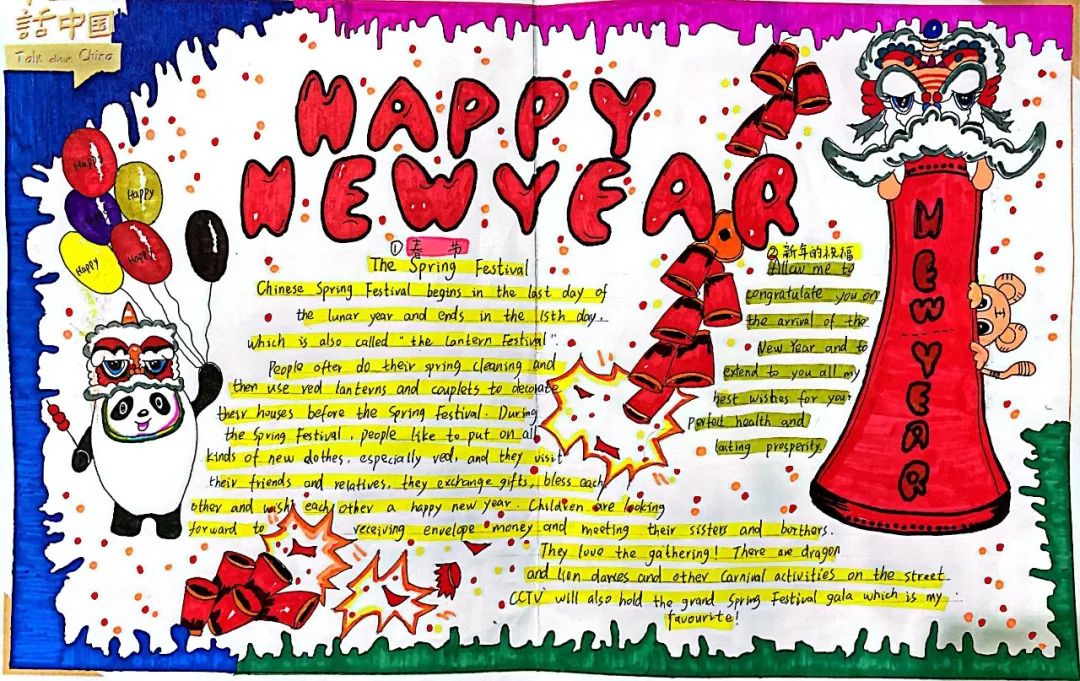 話中国
Talk about China
HAPPY
NEW YEAR
Happy
Happy
Happy
Happy
① 春节
The Spring Festival
Chinese Spring Festival begins in the last day of
the lunar year and ends in the 15th day,
which is also called "the Lantern Festival".
People ofter do their spring cleaning and
then use red lanterns and couplets to decorate
their houses before the Spring festival. During
the Spring Festival, people like to put on all
kinds of new clothes, especially red, and they visit
their friends and relatives, they exchange gifts, bless each
other and wish each other a happy new year. Children are looking
forward to receiving envelope money and meeting their sisters and borthers.
They love the gathering! There are dragon
and lion dances and other Carnival activities on the street.
CCTV will also hold the grand Spring Festival gala which is my
favourite!
② 新年的祝福
Allow me to
congratulate you on
the arrival of the
New Year and to
extend to you all my
best wishes for your
perfect health and
lasting prosperity.
NEW YEAR